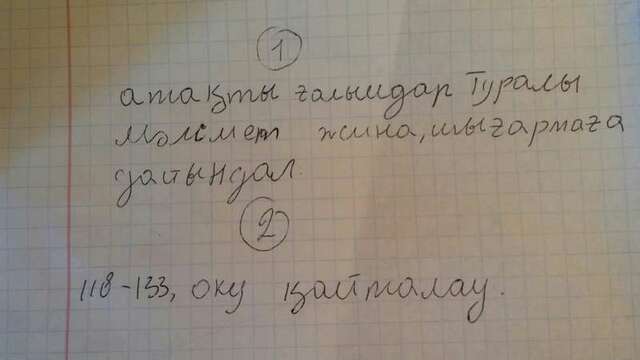 1
атақты ғалымдар туралы
мәлімет жина, шығармаға
дайындал.
2
118-133, оқу қайталау.